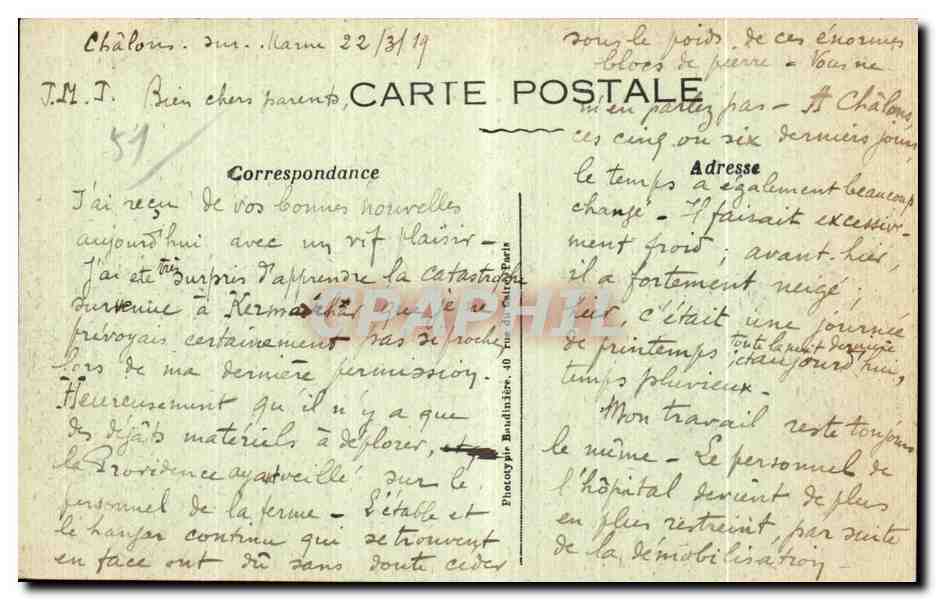 Châlons-sur-Marne 22/3/19
J.M.J. Bien chers parents,
CARTE POSTALE
51
Correspondance
J'ai reçu de vos bonnes nouvelles
aujourd'hui avec un vif plaisir -
J'ai été très surpris d'apprendre la catastrophe
survenue à que je ne
prévoyais certainement pas si proche,
lors de ma dernière permission.
Heureusement qu'il n'y a que
des dégâts matériels à déplorer,
la Providence ayant veillé sur le
personnel de la ferme - L'étable et
le hangar continu qui se trouvent
en face ont dû sans doute céder
Phototypie Baudinière, 40 rue du Caire, Paris
sous le poids de ces énormes
blocs de pierre - Vous ne
m'en parlez pas - A Châlons,
ces cinq ou six derniers jours,
Adresse
le temps a également beaucoup
changé - Il faisait excessive-
ment froid ; avant-hier,
il a fortement neigé ;
hier, c'était une journée
de printemps ; toute la nuit dernière
et aujourd'hui,
temps pluvieux -
Mon travail reste toujours
le même - Le personnel de
l'hôpital devient de plus
en plus restreint, par suite
de la démobilisation -
CPAPHIL